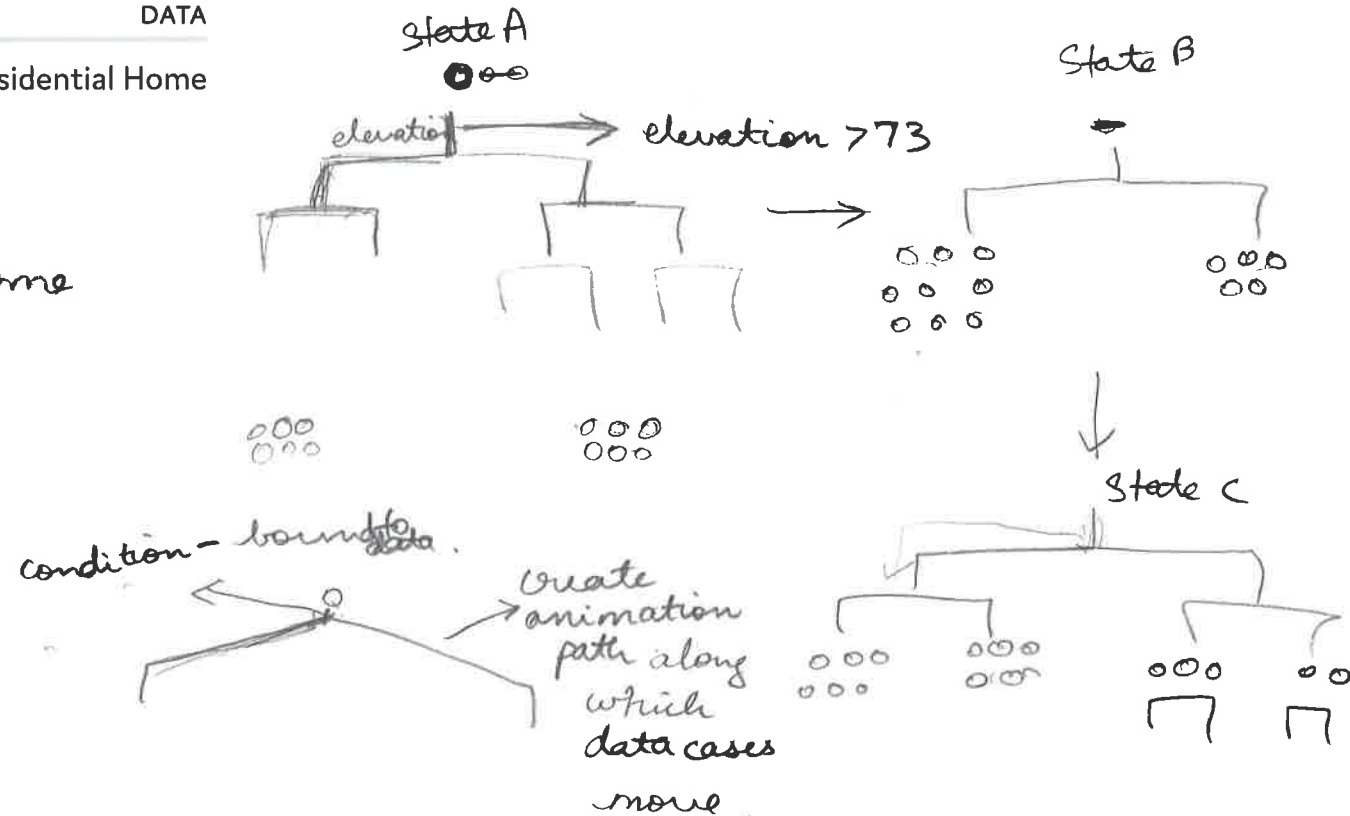 DATA
sidential Home
State A
State B
elevation
elevation >73
me
State C
condition - bound to data.
create
animation
path along
which
data cases
move